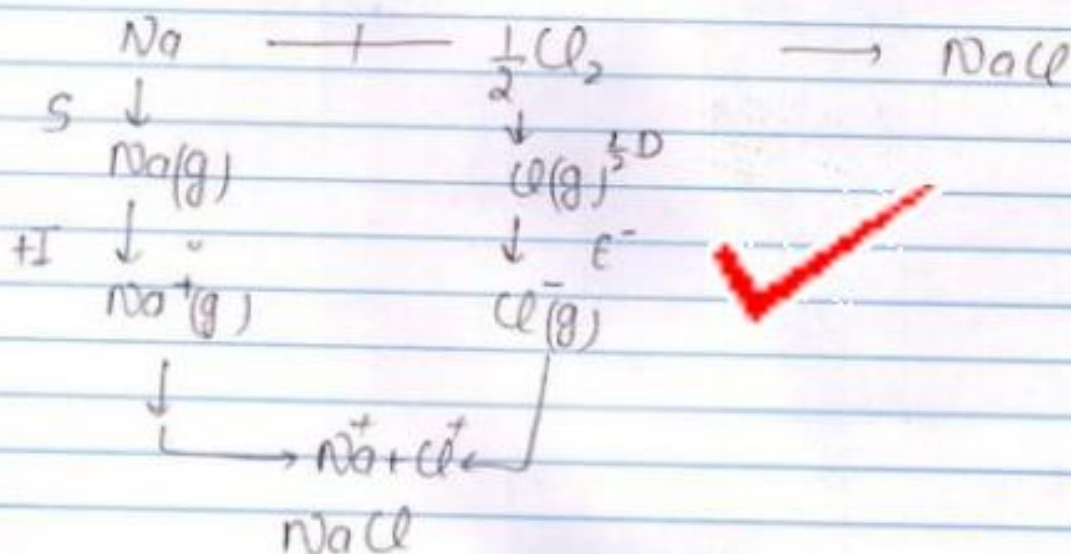 Na + ½Cl₂ → NaCl
S ↓ ↓ ½D
Na(g) Cl(g)
+I ↓ ↓ E⁻
Na⁺(g) Cl⁻(g)
↓
→ Na⁺ + Cl⁺ ←
NaCl